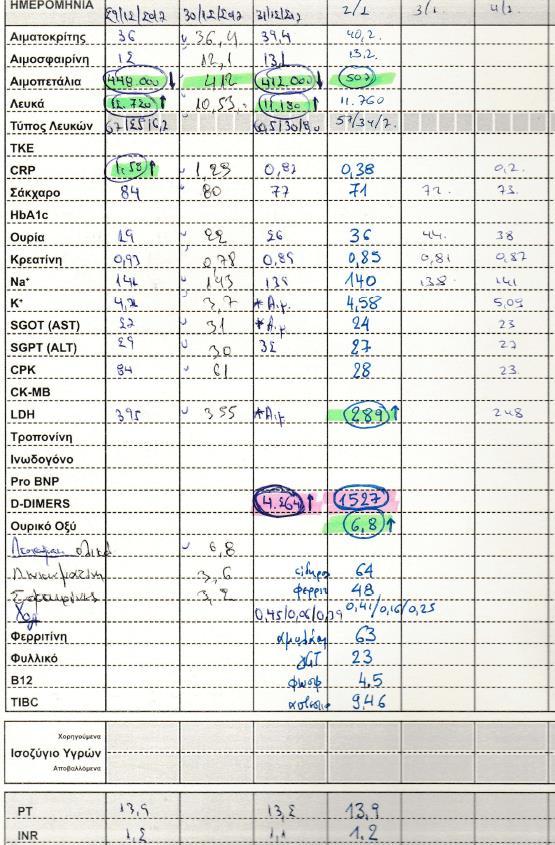 ΗΜΕΡΟΜΗΝΙΑ 29/12/2012 30/12/2012 31/12/212 2/1 3/1 4/1
Αιματοκρίτης 36 36,4 39,4 40,2.
Αιμοσφαιρίνη 12 12,1 13,1 13.2.
Αιμοπετάλια 448.000 ↓ 412 412.000 ↓ 507
Λευκά 12.720 ↑ 10,53. 11.180 ↑ 11.760
Τύπος Λευκών 57/34/7.
ΤΚΕ
CRP 1,58 ↑ 1,23 0,82 0,38 0,2.
Σάκχαρο 84 80 77 71 72. 73.
HbA1c
Ουρία 29 22 26 36 44. 38
Κρεατίνη 0,93 0,78 0,85 0,85 0,81 0,87
Na⁺ 142 143 139 140 138. 141
K⁺ 4,2 3,7 *Αιμ. 4,58 5,09
SGOT (AST) 27 31 *Αιμ. 24 23
SGPT (ALT) 29 30 32 27 27
CPK 84 61 28 23.
CK-MB
LDH 395 355 *Αιμ 289 ↑ 248
Τροπονίνη
Ινωδογόνο
Pro BNP
D-DIMERS 4.264 ↑ 1527
Ουρικό Οξύ 6,8 ↑
ολικά 6,8
3,6 σίδηρος 64
3,2 φερριτ 48
Χολ 0,45/0,06/0,39 0,41/0,16/0,25
Φερριτίνη 63
Φυλλικό γGT 23
B12 φωσφ 4.5
TIBC ασβεστιο 9,46
Χορηγούμενα
Ισοζύγιο Υγρών
Αποβαλλόμενα
PT 13,9 13,2 13,9
INR 1,2 1,1 1.2